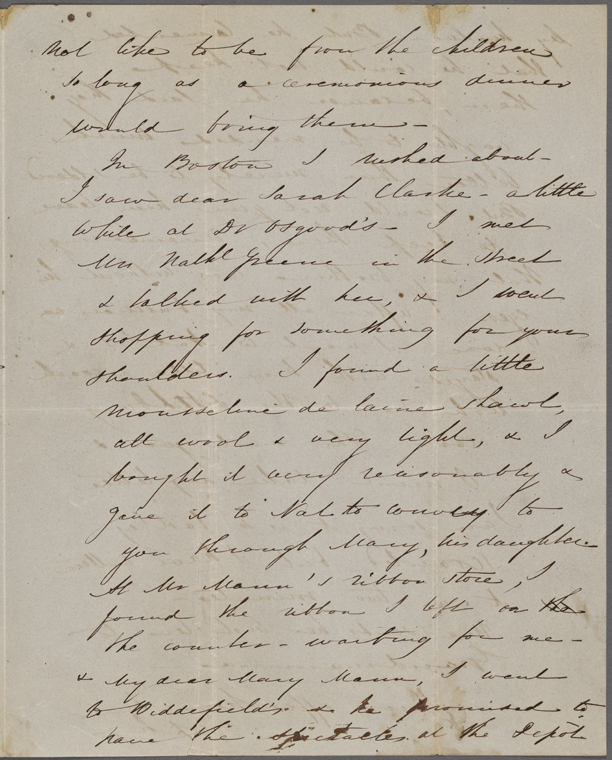 not like to be from the children
so long as a ceremonious dinner
would bring them —
In Boston I rushed about —
I saw dear Sarah Clarke — a little
while at Dr Osgood's — I met
Mrs Nathl Greene in the street
& talked with her, & I went
shopping for something for your
shoulders. I found a little
mousseline de laine shawl,
all wool & very light, & I
bought it very reasonably &
gave it to Nat to convey to
you through Mary, his daughter
At Mr Mann's ribbon store, I
found the ribbon I left on the
the counter — waiting for me —
& my dear Mary Mann, I went
to Widdefield's & he promised to
have the spectacles at the Depôt